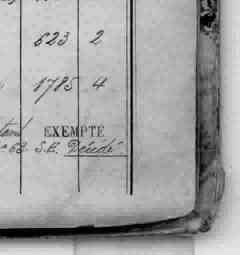 623 2
1785 4
EXEMPTÉ
63 S.E. Décédé